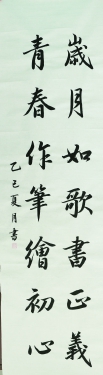 歲月如歌書正義
青春作筆繪初心
乙巳夏月書